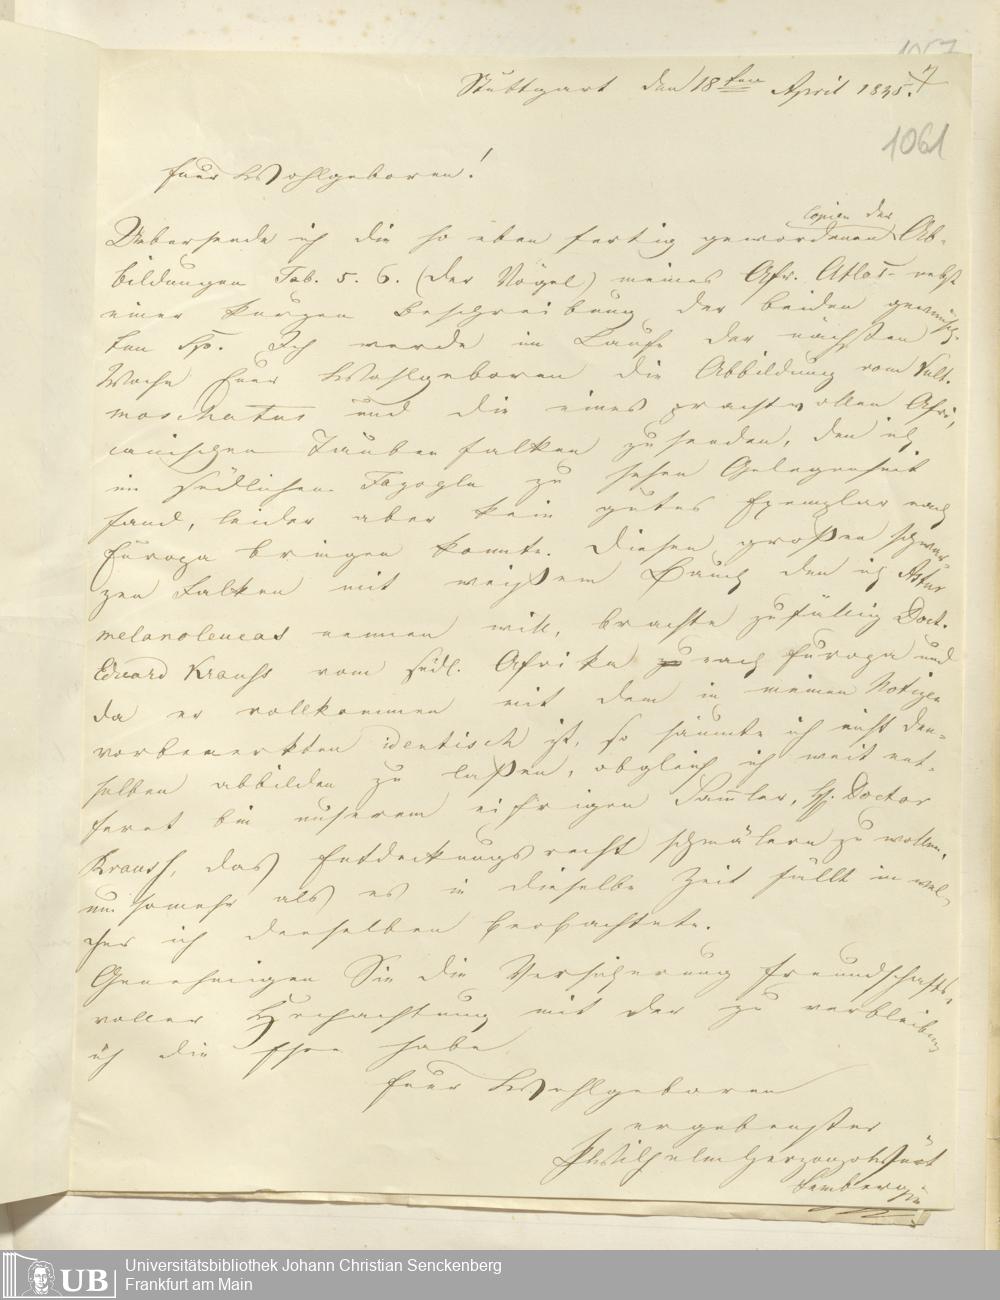 Stuttgart den 18ten April 1845.
7
1061
Euer Wohlgeboren!
Copien der
Uebersende ich die so eben fertig gewordenen Ab-
bildungen Tab. 5. 6. (der Vögel) meines Afr. Atlas nebst
einer kurzen Beschreibung der beiden gewünsch-
ten Sp. Ich werde im Laufe der nächsten
Woche Euer Wohlgeboren die Abbildung vom Vult.
moschatus und die eines prachtvollen Afri-
canischen Taubenfalken zu senden, den ich
im südlichen Fazogle zu sehen Gelegenheit
fand, leider aber kein gutes Exemplar nach
Europa bringen konnte. Diesen großen schwar-
zen Falken mit weißem Bauch den ich Astur
melanoleucas nennen will, brachte zufällig Doct.
Eduard Krauss vom südl. Afrika nach Europa und
da er vollkommen mit dem in meinen Notizen
vorbemerkten identisch ist, so säumte ich nicht den-
selben abbilden zu laßen, obgleich ich weit ent-
fernt bin unserem eifrigen Sammler, H. Doctor
Krauss, das Entdeckungsrecht schmälern zu wollen,
um somehr als es in dieselbe Zeit fällt in wel-
cher ich denselben beobachtete.
Genehmigen Sie die Versicherung freundschafts-
voller Hochachtung mit der zu verbleiben
ich die Ehre habe
Euer Wohlgeboren
ergebenster
P Wilhelm Herzog v Würt
temberg
UB
Universitätsbibliothek Johann Christian Senckenberg
Frankfurt am Main